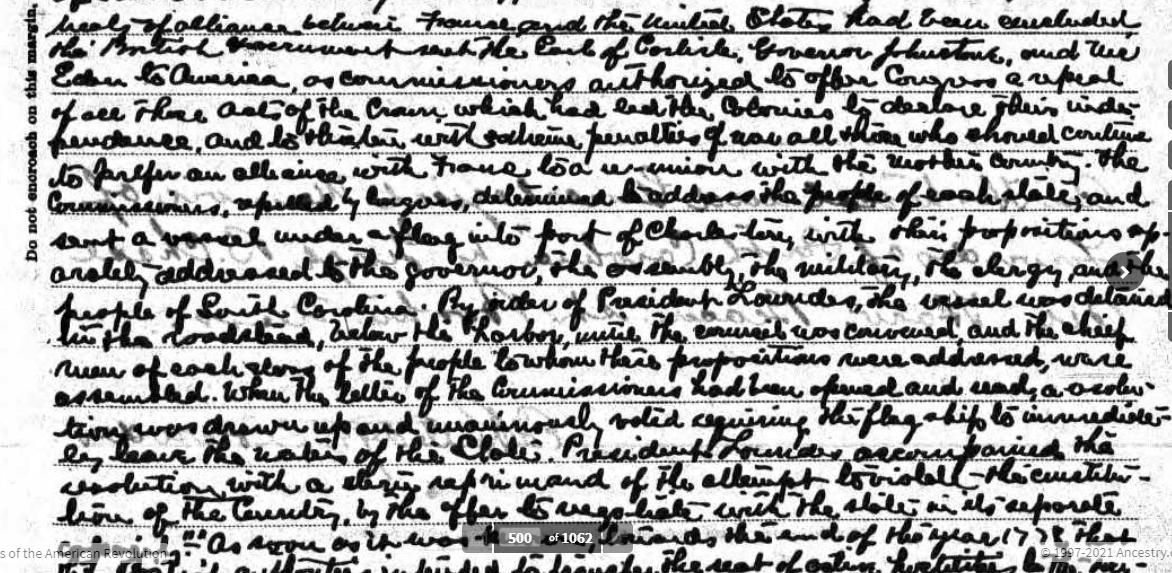 treaty of alliance between France and the United States had been concluded
the British Government sent the Earl of Carlisle, Governor Johnstone, and Mr
Eden to America, as commissioners authorized to offer Congress a repeal
of all those acts of the Crown which had led the Colonies to declare their inde-
pendence, and to threaten with extreme penalties of war all those who should continue
to prefer an alliance with France to a re-union with the mother Country. The
Commissioners, repulsed by Congress, determined to address the people of each state, and
sent a vessel under a flag into port of Charleston, with their propositions sep-
arately addressed to the governor, the assembly, the military, the clergy, and the
people of South Carolina. By order of President Lowndes, the vessel was detained
in the roadstead, below the harbor, until the council was convened, and the chief
men of each class of the people to whom these propositions were addressed, were
assembled. When the letter of the Commissioners had been opened and read, a resolu-
tion was drawn up and unanimously voted requiring the flag ship to immediate-
ly leave the waters of the State. President Lowndes accompanied the
resolution with a stern reprimand of the attempt to violate the constitu-
tion of the Country, by the offer to negotiate with the state in its separate
"As soon as it was towards the end of the year 1778 that
to transfer the seat of
Do not encroach on this margin.
500 of 1062
s of the American Revolution
© 1997-2021 Ancestry